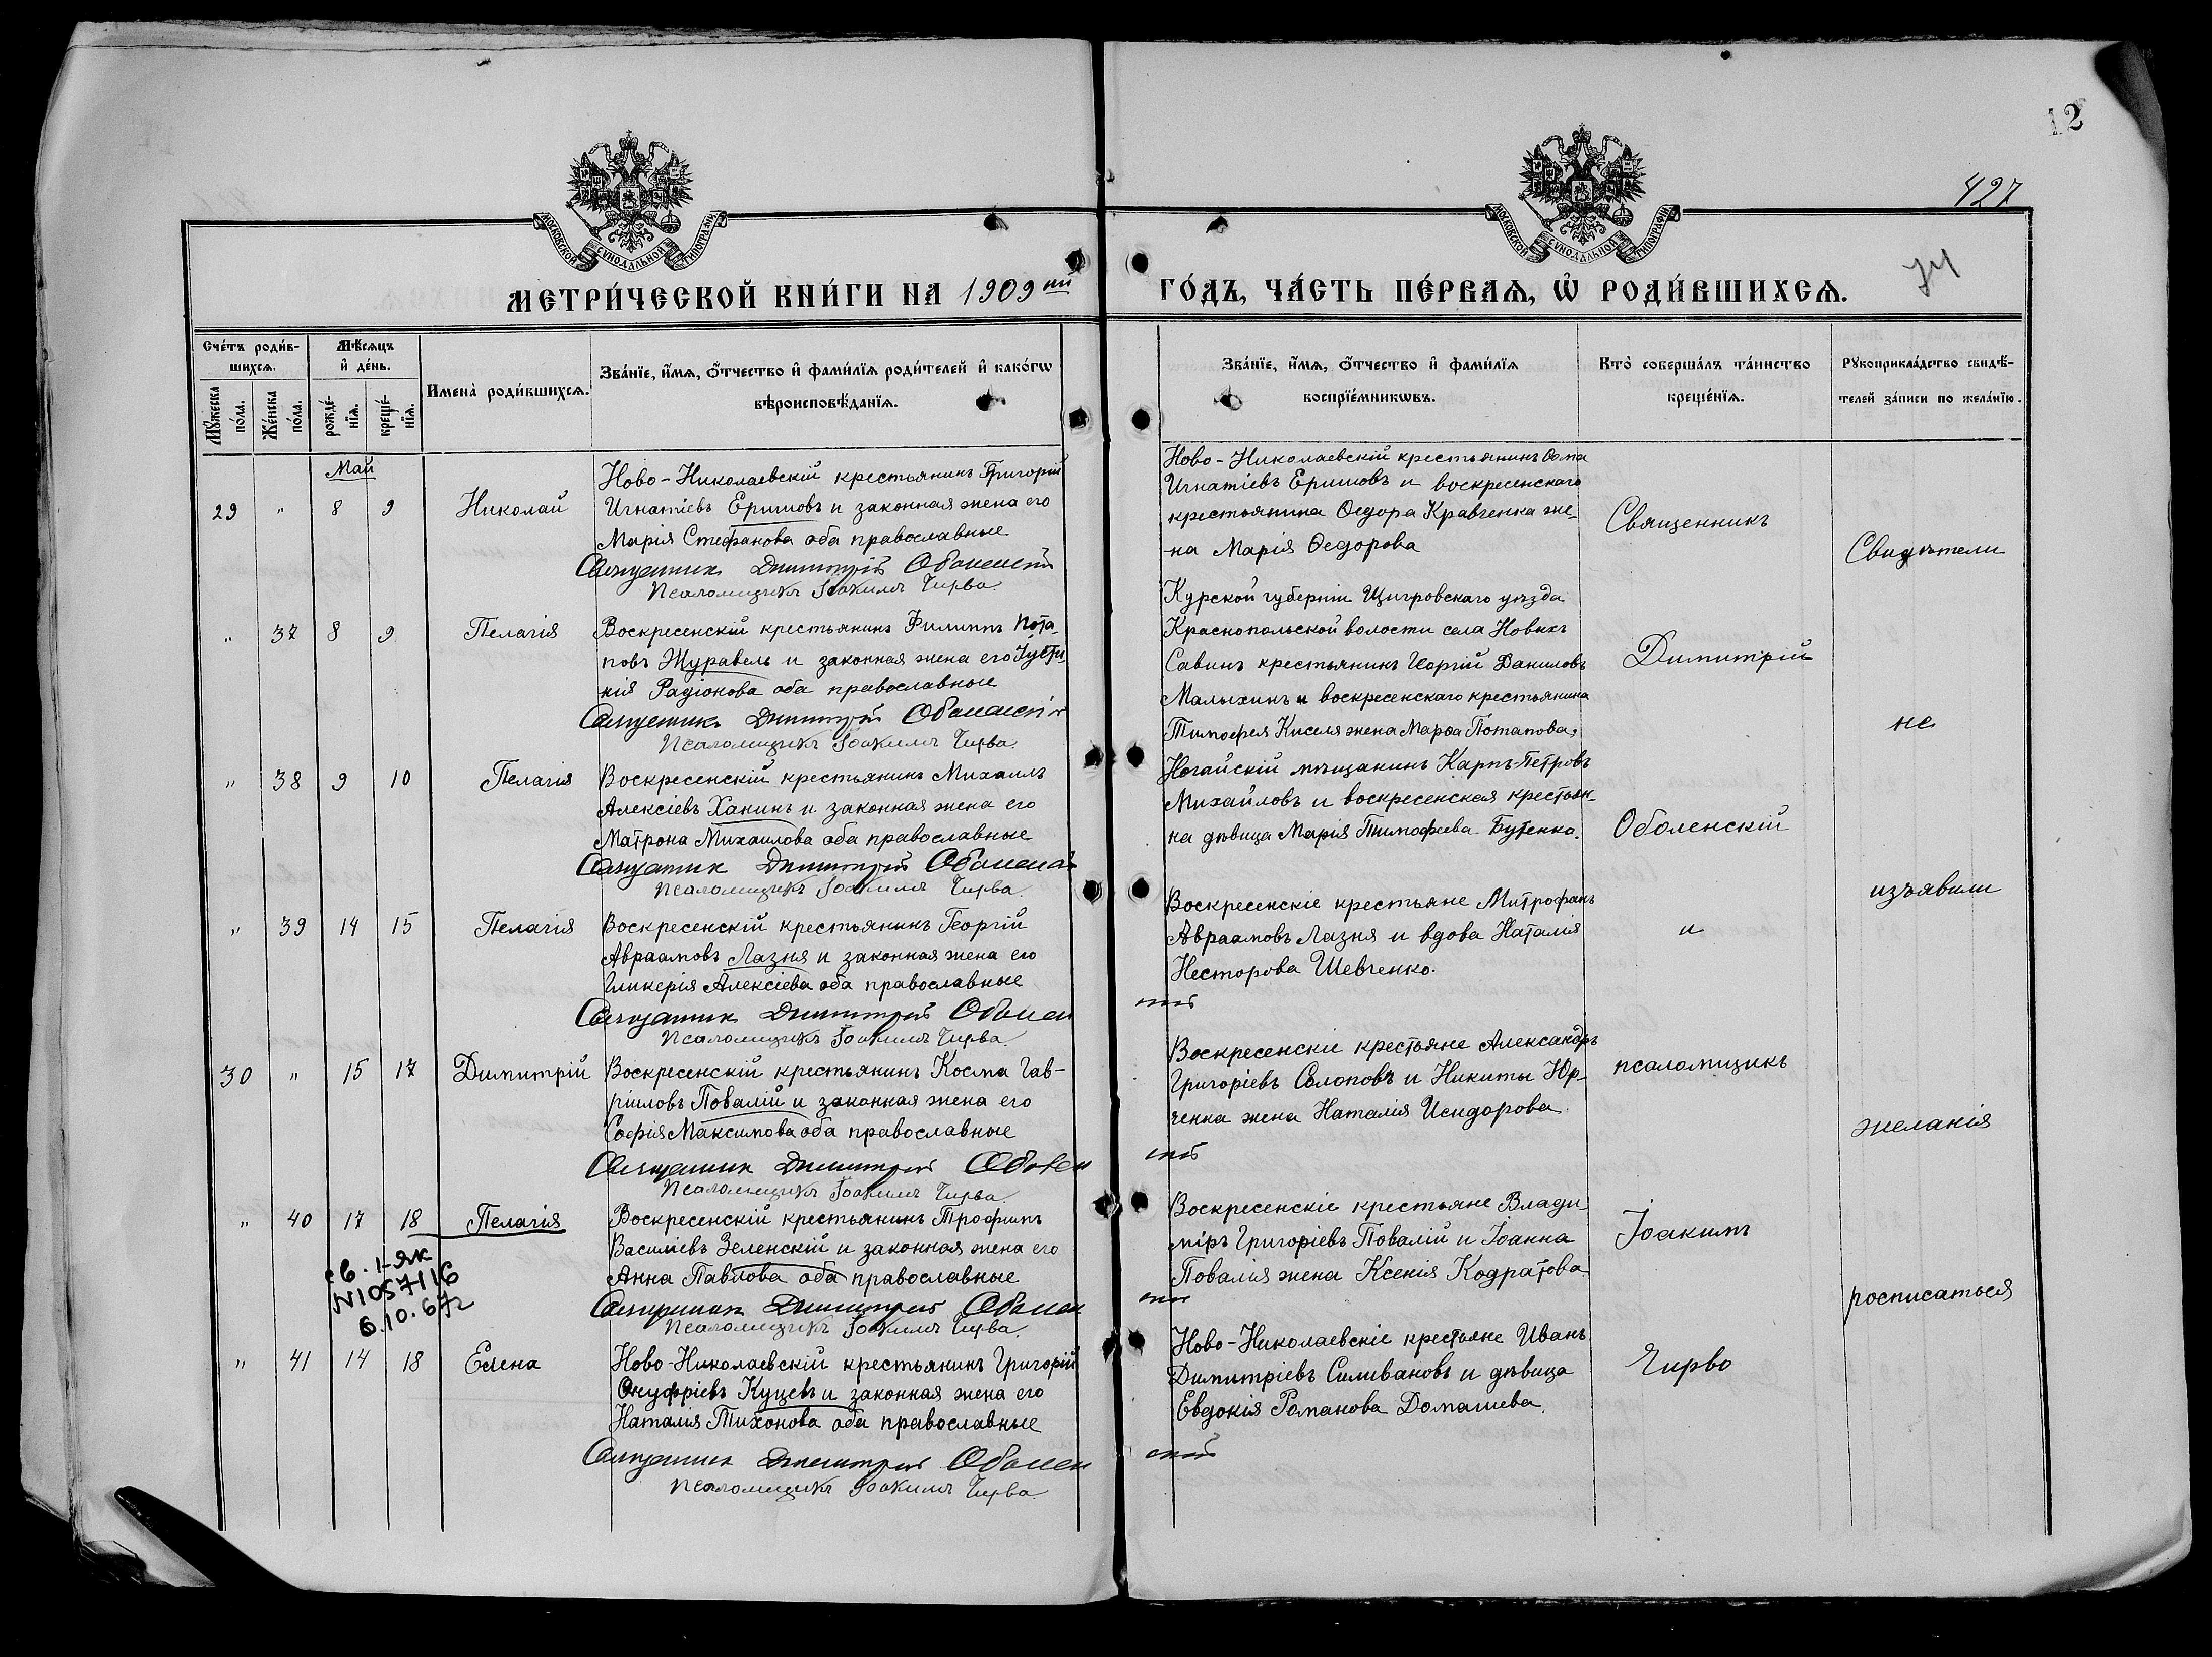 12
427
МОСКОВСКОЙ СѴНОДАЛЬНОЙ ТИПОГРАФІИ
МОСКОВСКОЙ СѴНОДАЛЬНОЙ ТИПОГРАФІИ
МЕТРИ́ЧЕСКОЙ КНИ́ГИ НА 1909ый ГО́ДЪ, ЧА́СТЬ ПЕ́РВАЯ, Ѽ РОДИ́ВШИХСЯ.
Сче́тъ роди́в-
шихся.
Му́жеска по́ла.
Же́нска по́ла.
Мѣ́сяцъ
и҆ де́нь.
рожде́-
нїя.
креще́-
нїя.
Имена̀ роди́вшихся.
Зва́нїе, и҆́мя, ѻ҆́тчество и҆ фами́лїя роди́телей и҆ како́гѡ
вѣроисповѣ́данїя.
Зва́нїе, и҆́мя, ѻ҆́тчество и҆ фами́лїя
воспрїе́мникѡвъ.
Кто̀ соверша́лъ та́инство
креще́нїя.
Рꙋкоприкла́дство свидѣ́-
телей за́писи по жела́нїю.
Май
29 " 8 9 Николай
Ново-Николаевскій крестьянинъ Григорій
Игнатіевъ Ершовъ и законная жена его
Марія Стефанова оба православные
Священникъ Димитрій Оболенскій
Псаломщикъ Іоакимъ Чирва.
Ново-Николаевскій крестьянинъ Ѳома
Игнатіевъ Ершовъ и воскресенскаго
крестьянина Ѳедора Кравченка же-
на Марія Ѳедорова
" 37 8 9 Пелагія
Воскресенскій крестьянинъ Филиппъ Пота-
повъ Журавель и законная жена его Іусти-
нія Радіонова оба православные
Священникъ Димитрій Оболенскій
Псаломщикъ Іоакимъ Чирва.
Курской губерніи Щигровскаго уѣзда
Краснопольской волости села Новыхъ
Савинъ крестьянинъ Георгій Даниловъ
Малыхинъ и воскресенскаго крестьянина
Тимофея Киселя жена Марѳа Потапова.
" 38 9 10 Пелагія
Воскресенскій крестьянинъ Михаилъ
Алексіевъ Ханинъ и законная жена его
Матрона Михаилова оба православные
Священникъ Димитрій Оболенскій
Псаломщикъ Іоакимъ Чирва.
Ногайскій мѣщанинъ Карпъ Петровъ
Михайловъ и воскресенская крестьян-
ка дѣвица Марія Тимофеева Бутенко.
" 39 14 15 Пелагія
Воскресенскій крестьянинъ Георгій
Авраамовъ Лазня и законная жена его
Гликерія Алексіева оба православные
Священникъ Димитрій Оболенскій
Псаломщикъ Іоакимъ Чирва.
Воскресенскіе крестьяне Митрофанъ
Авраамовъ Лазня и вдова Наталія
Несторова Шевченко.
30 " 15 17 Димитрій
Воскресенскій крестьянинъ Косма Гав-
ріиловъ Повалій и законная жена его
Софія Максимова оба православные
Священникъ Димитрій Оболенскій
Псаломщикъ Іоакимъ Чирва.
Воскресенскіе крестьяне Александръ
Григоріевъ Солоповъ и Никиты Юр-
ченка жена Наталія Исидорова.
" 40 17 18 Пелагія
Воскресенскій крестьянинъ Трофимъ
Василіевъ Зеленскій и законная жена его
Анна Павлова оба православные
Священникъ Димитрій Оболенскій
Псаломщикъ Іоакимъ Чирва.
Воскресенскіе крестьяне Влади-
міръ Григоріевъ Повалій и Іоанна
Повалія жена Ксенія Кодратова.
св. I-ЯК
N1057116
6.10.67г
" 41 14 18 Елена
Ново-Николаевскій крестьянинъ Григорій
Онуфріевъ Куцевъ и законная жена его
Наталія Тихонова оба православные
Священникъ Димитрій Оболенскій
Псаломщикъ Іоакимъ Чирва
Ново-Николаевскіе крестьяне Иванъ
Димитріевъ Силивановъ и дѣвица
Евдокія Романова Домашева.
Священникъ
Димитрій
Оболенскій
и
псаломщикъ
Іоакимъ
Чирво
Свидѣтели
не
изъявили
желанія
росписаться